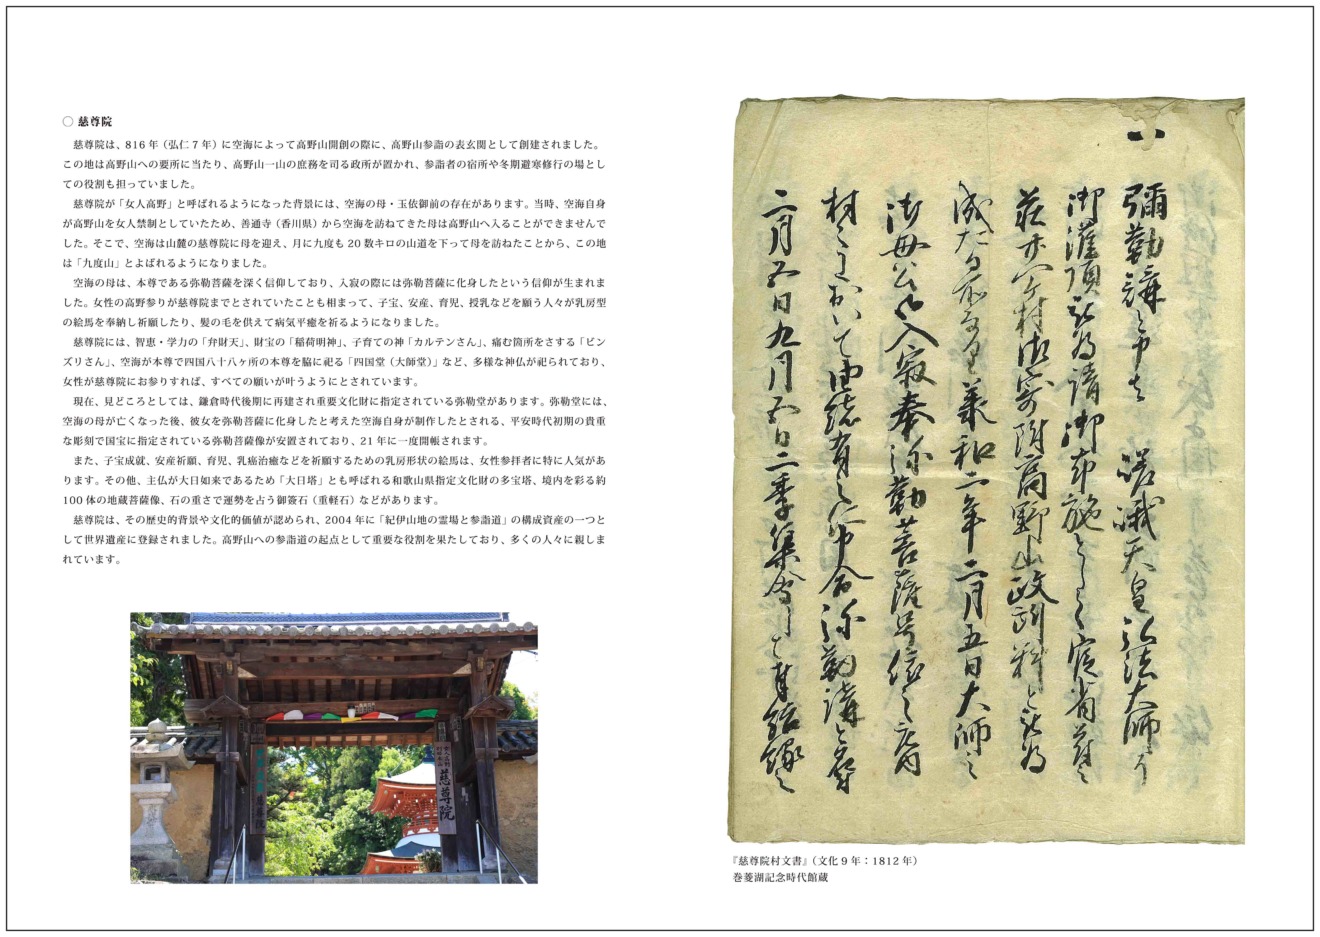 〇 慈尊院
慈尊院は、816 年（弘仁 7 年）に空海によって高野山開創の際に、高野山参詣の表玄関として創建されました。
この地は高野山への要所に当たり、高野山一山の庶務を司る政所が置かれ、参詣者の宿所や冬期避寒修行の場とし
ての役割も担っていました。
慈尊院が「女人高野」と呼ばれるようになった背景には、空海の母・玉依御前の存在があります。当時、空海自身
が高野山を女人禁制としていたため、善通寺（香川県）から空海を訪ねてきた母は高野山へ入ることができませんで
した。そこで、空海は山麓の慈尊院に母を迎え、月に九度も 20 数キロの山道を下って母を訪ねたことから、この地
は「九度山」とよばれるようになりました。
空海の母は、本尊である弥勒菩薩を深く信仰しており、入寂の際には弥勒菩薩に化身したという信仰が生まれま
した。女性の高野参りが慈尊院までとされていたことも相まって、子宝、安産、育児、授乳などを願う人々が乳房型
の絵馬を奉納し祈願したり、髪の毛を供えて病気平癒を祈るようになりました。
慈尊院には、智恵・学力の「弁財天」、財宝の「稲荷明神」、子育ての神「カルテンさん」、痛む箇所をさする「ビン
ズリさん」、空海が本尊で四国八十八ヶ所の本尊を脇に祀る「四国堂（大師堂）」など、多様な神仏が祀られており、
女性が慈尊院にお参りすれば、すべての願いが叶うようにとされています。
現在、見どころとしては、鎌倉時代後期に再建され重要文化財に指定されている弥勒堂があります。弥勒堂には、
空海の母が亡くなった後、彼女を弥勒菩薩に化身したと考えた空海自身が制作したとされる、平安時代初期の貴重
な彫刻で国宝に指定されている弥勒菩薩像が安置されており、21 年に一度開帳されます。
また、子宝成就、安産祈願、育児、乳癌治癒などを祈願するための乳房形状の絵馬は、女性参拝者に特に人気があ
ります。その他、主仏が大日如来であるため「大日塔」とも呼ばれる和歌山県指定文化財の多宝塔、境内を彩る約
100 体の地蔵菩薩像、石の重さで運勢を占う御簽石（重軽石）などがあります。
慈尊院は、その歴史的背景や文化的価値が認められ、2004 年に「紀伊山地の霊場と参詣道」の構成資産の一つと
して世界遺産に登録されました。高野山への参詣道の起点として重要な役割を果たしており、多くの人々に親しま
れています。
慈尊院
一
彌勒講之事者 嵯峨天皇弘法大師
御灌頂 為請御布施 官省符之
荘 村御寄附高野山政所料と 為
承和二年三月五日大師之
御母公 入寂奉弥勒菩薩号依之
村 おいて 有之 弥勒講と
二月五日九月五日二季集会
『慈尊院村文書』（文化 9 年：1812 年）
巻菱湖記念時代館蔵